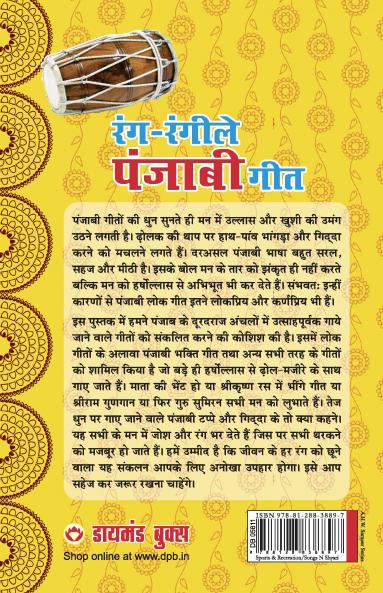 रंग-रंगीले
पंजाबी गीत
पंजाबी गीतों की धुन सुनते ही मन में उल्लास और खुशी की उमंग
उठने लगती है। ढ़ोलक की थाप पर हाथ-पांव भांगड़ा और गिद्दा
करने को मचलने लगते हैं। दरअसल पंजाबी भाषा बहुत सरल,
सहज और मीठी है। इसके बोल मन के तार को झंकृत ही नहीं करते
बल्कि मन को हर्षोल्लास से अभिभूत भी कर देते हैं। संभवतः इन्हीं
कारणों से पंजाबी लोक गीत इतने लोकप्रिय और कर्णप्रिय भी हैं।
इस पुस्तक में हमने पंजाब के दूरदराज अंचलों में उत्साहपूर्वक गाये
जाने वाले गीतों को संकलित करने की कोशिश की है। इसमें लोक
गीतों के अलावा पंजाबी भक्ति गीत तथा अन्य सभी तरह के गीतों
को शामिल किया है जो बड़े ही हर्षोल्लास से ढ़ोल-मजीरे के साथ
गाए जाते हैं। माता की भेंट हो या श्रीकृष्ण रस में भीगे गीत या
श्रीराम गुणगान या फिर गुरु सुमिरन सभी मन को लुभाते हैं। तेज
धुन पर गाए जाने वाले पंजाबी टप्पे और गिद्दा के तो क्या कहने।
यह सभी के मन में जोश और रंग भर देते हैं जिस पर सभी थरकने
को मजबूर हो जाते हैं। हमें उम्मीद है कि जीवन के हर रंग को छूने
वाला यह संकलन आपके लिए अनोखा उपहार होगा। इसे आप
सहेज कर जरूर रखना चाहेंगे।
डायमंड बुक्स
Shop online at www.dpb.in
ISBN 978-81-288-3889-7
CB 05611
9 788128 838897
Sports & Recreation/Songs N Shyari